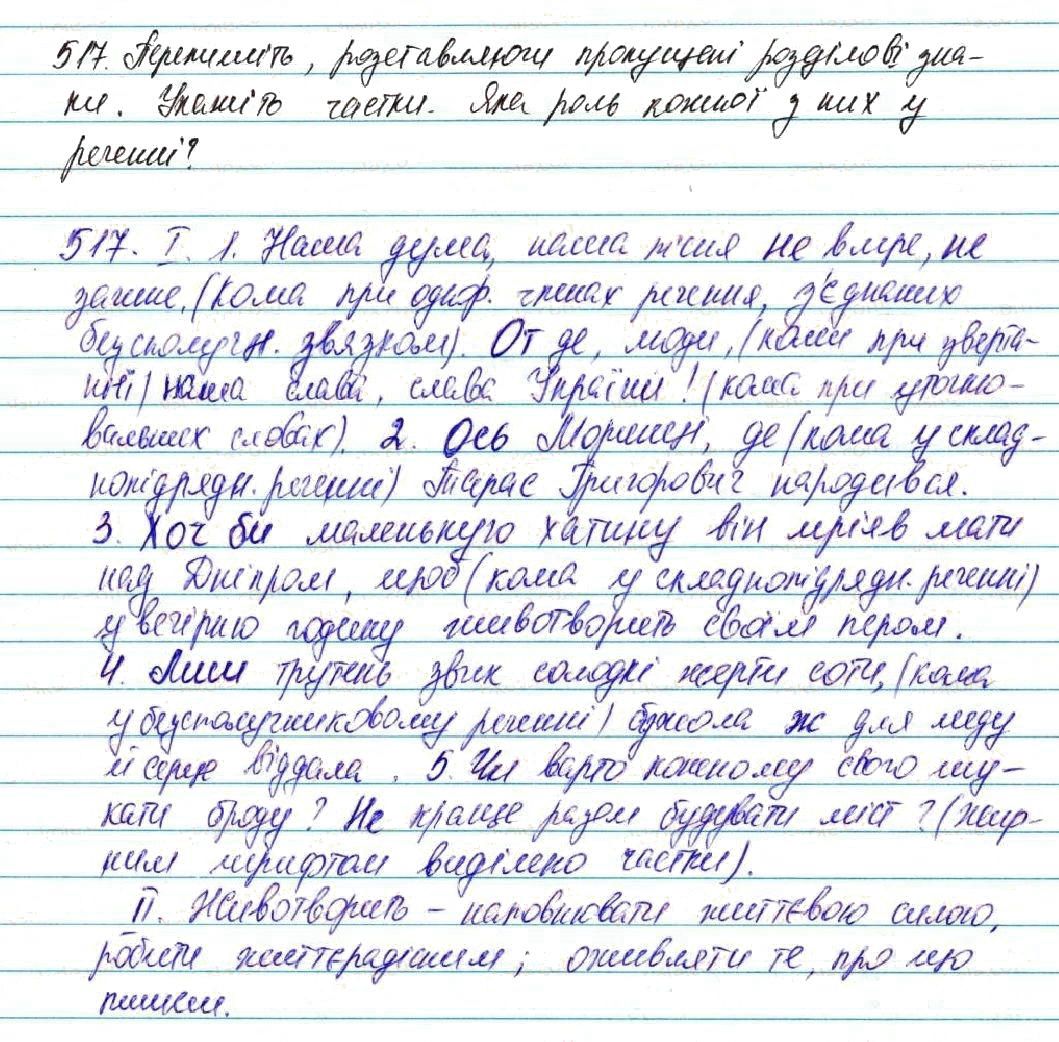 517. Перепишіть, розставляючи пропущені розділові зна-
ки. Укажіть частки. Яка роль кожної з них у
реченні?
517. I. 1. Наша дума, наша пісня не вмре, не
загине, (кома при однор. членах речення, з'єднаних
безсполучн. звязком). От де, люди, (коми при зверта-
нні) наша слава, слава України! (кома при уточню-
вальних словах). 2. Ось Моринці, де (кома у склад-
нопідрядн. реченні) Тарас Григорович народився.
3. Хоч би маленьку хатину він мріяв мати
над Дніпром, щоб (кома у складнопідрядн. реченні)
у вечірню годину животворить своїм пером.
4. Лиш трутень звик солодкі жерти соти, (кома
у безсполучниковому реченні) бджола ж для меду
й серце віддала. 5. Чи варто кожному свого шу-
кати броду? Не краще разом будувати міст? (жир-
ним шрифтом виділено частки).
II. Животворить - наповнювати життєвою силою,
робити життєрадісним; оживляти те, про що
пишеш.